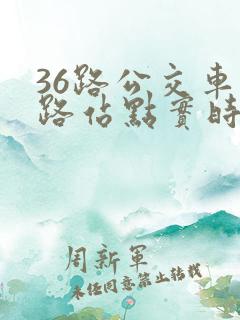 36路公交車
路佔點實時
周新軍
未经同意禁止转载